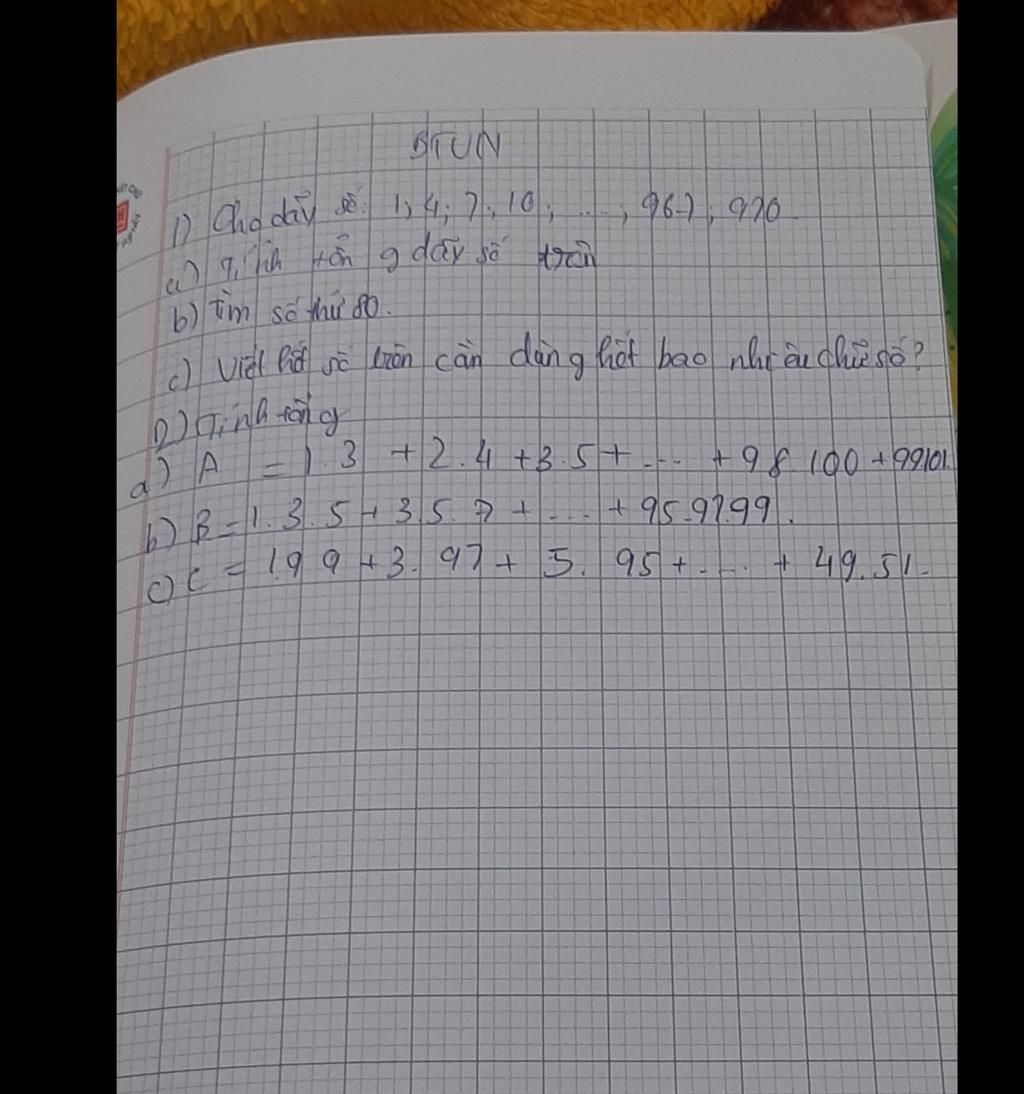 BTVN
1) Cho dãy số: 1; 4; 7; 10; ...; 967; 970
a) Tính tổng dãy số trên
b) Tìm số thứ 80.
c) Viết hết số trên cần dùng hết bao nhiêu chữ số?
2) Tính tổng
a) A = 1.3 + 2.4 + 3.5 + ... + 98.100 + 99.101.
b) B = 1.3.5 + 3.5.7 + ... + 95.97.99.
c) C = 1.99 + 3.97 + 5.95 + ... + 49.51.